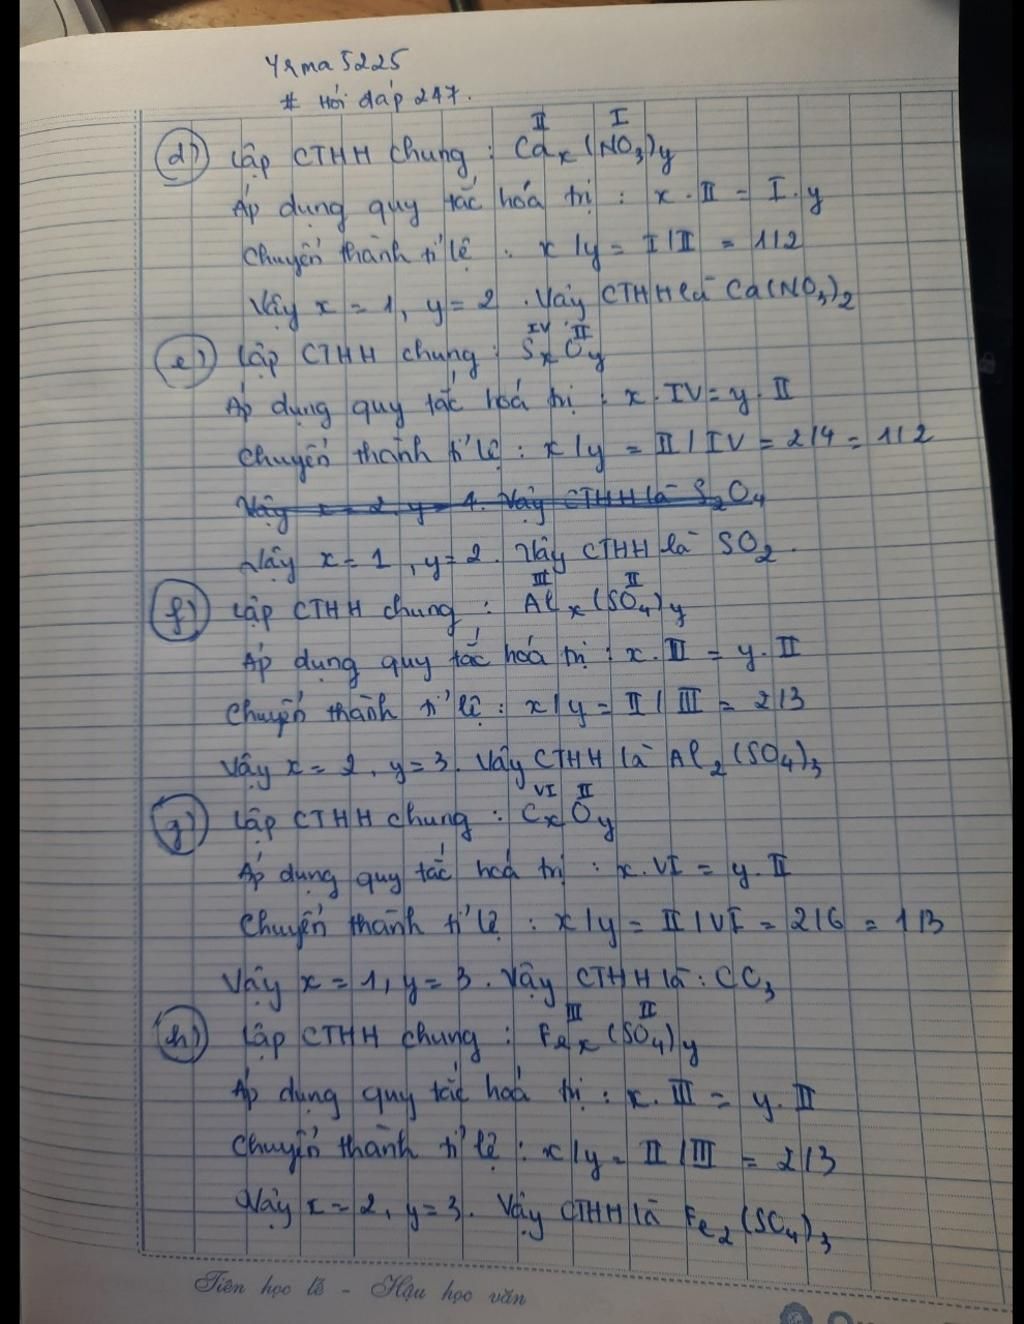 Yrma5225
# Hỏi đáp 247.
d) Lập CTHH chung : Caₓ(NO₃)y
II I
Áp dụng quy tắc hoá trị : x . II = I . y
Chuyển thành tỉ lệ : x/y = I/II = 1/2
Vậy x = 1, y = 2 . Vậy CTHH là Ca(NO₃)₂
e) Lập CTHH chung : SₓOy
IV II
Áp dụng quy tắc hoá trị : x . IV = y . II
Chuyển thành tỉ lệ : x/y = II/IV = 2/4 = 1/2
Vậy x = 2, y = 4. Vậy CTHH là S₂O₄
Vậy x = 1, y = 2. Vậy CTHH là SO₂.
f) Lập CTHH chung : Alₓ(SO₄)y
III II
Áp dụng quy tắc hoá trị : x . II = y . II
Chuyển thành tỉ lệ : x/y = II/III = 2/3
Vậy x = 2, y = 3. Vậy CTHH là Al₂(SO₄)₃
g) Lập CTHH chung : CₓOy
VI II
Áp dụng quy tắc hoá trị : x . VI = y . II
Chuyển thành tỉ lệ : x/y = II/VI = 2/6 = 1/3
Vậy x = 1, y = 3. Vậy CTHH là : CO₃
h) Lập CTHH chung : Feₓ(SO₄)y
III II
Áp dụng quy tắc hoá trị : x . III = y . II
Chuyển thành tỉ lệ : x/y = II/III = 2/3
Vậy x = 2, y = 3. Vậy CTHH là Fe₂(SO₄)₃
Tiên học lễ - Hậu học văn